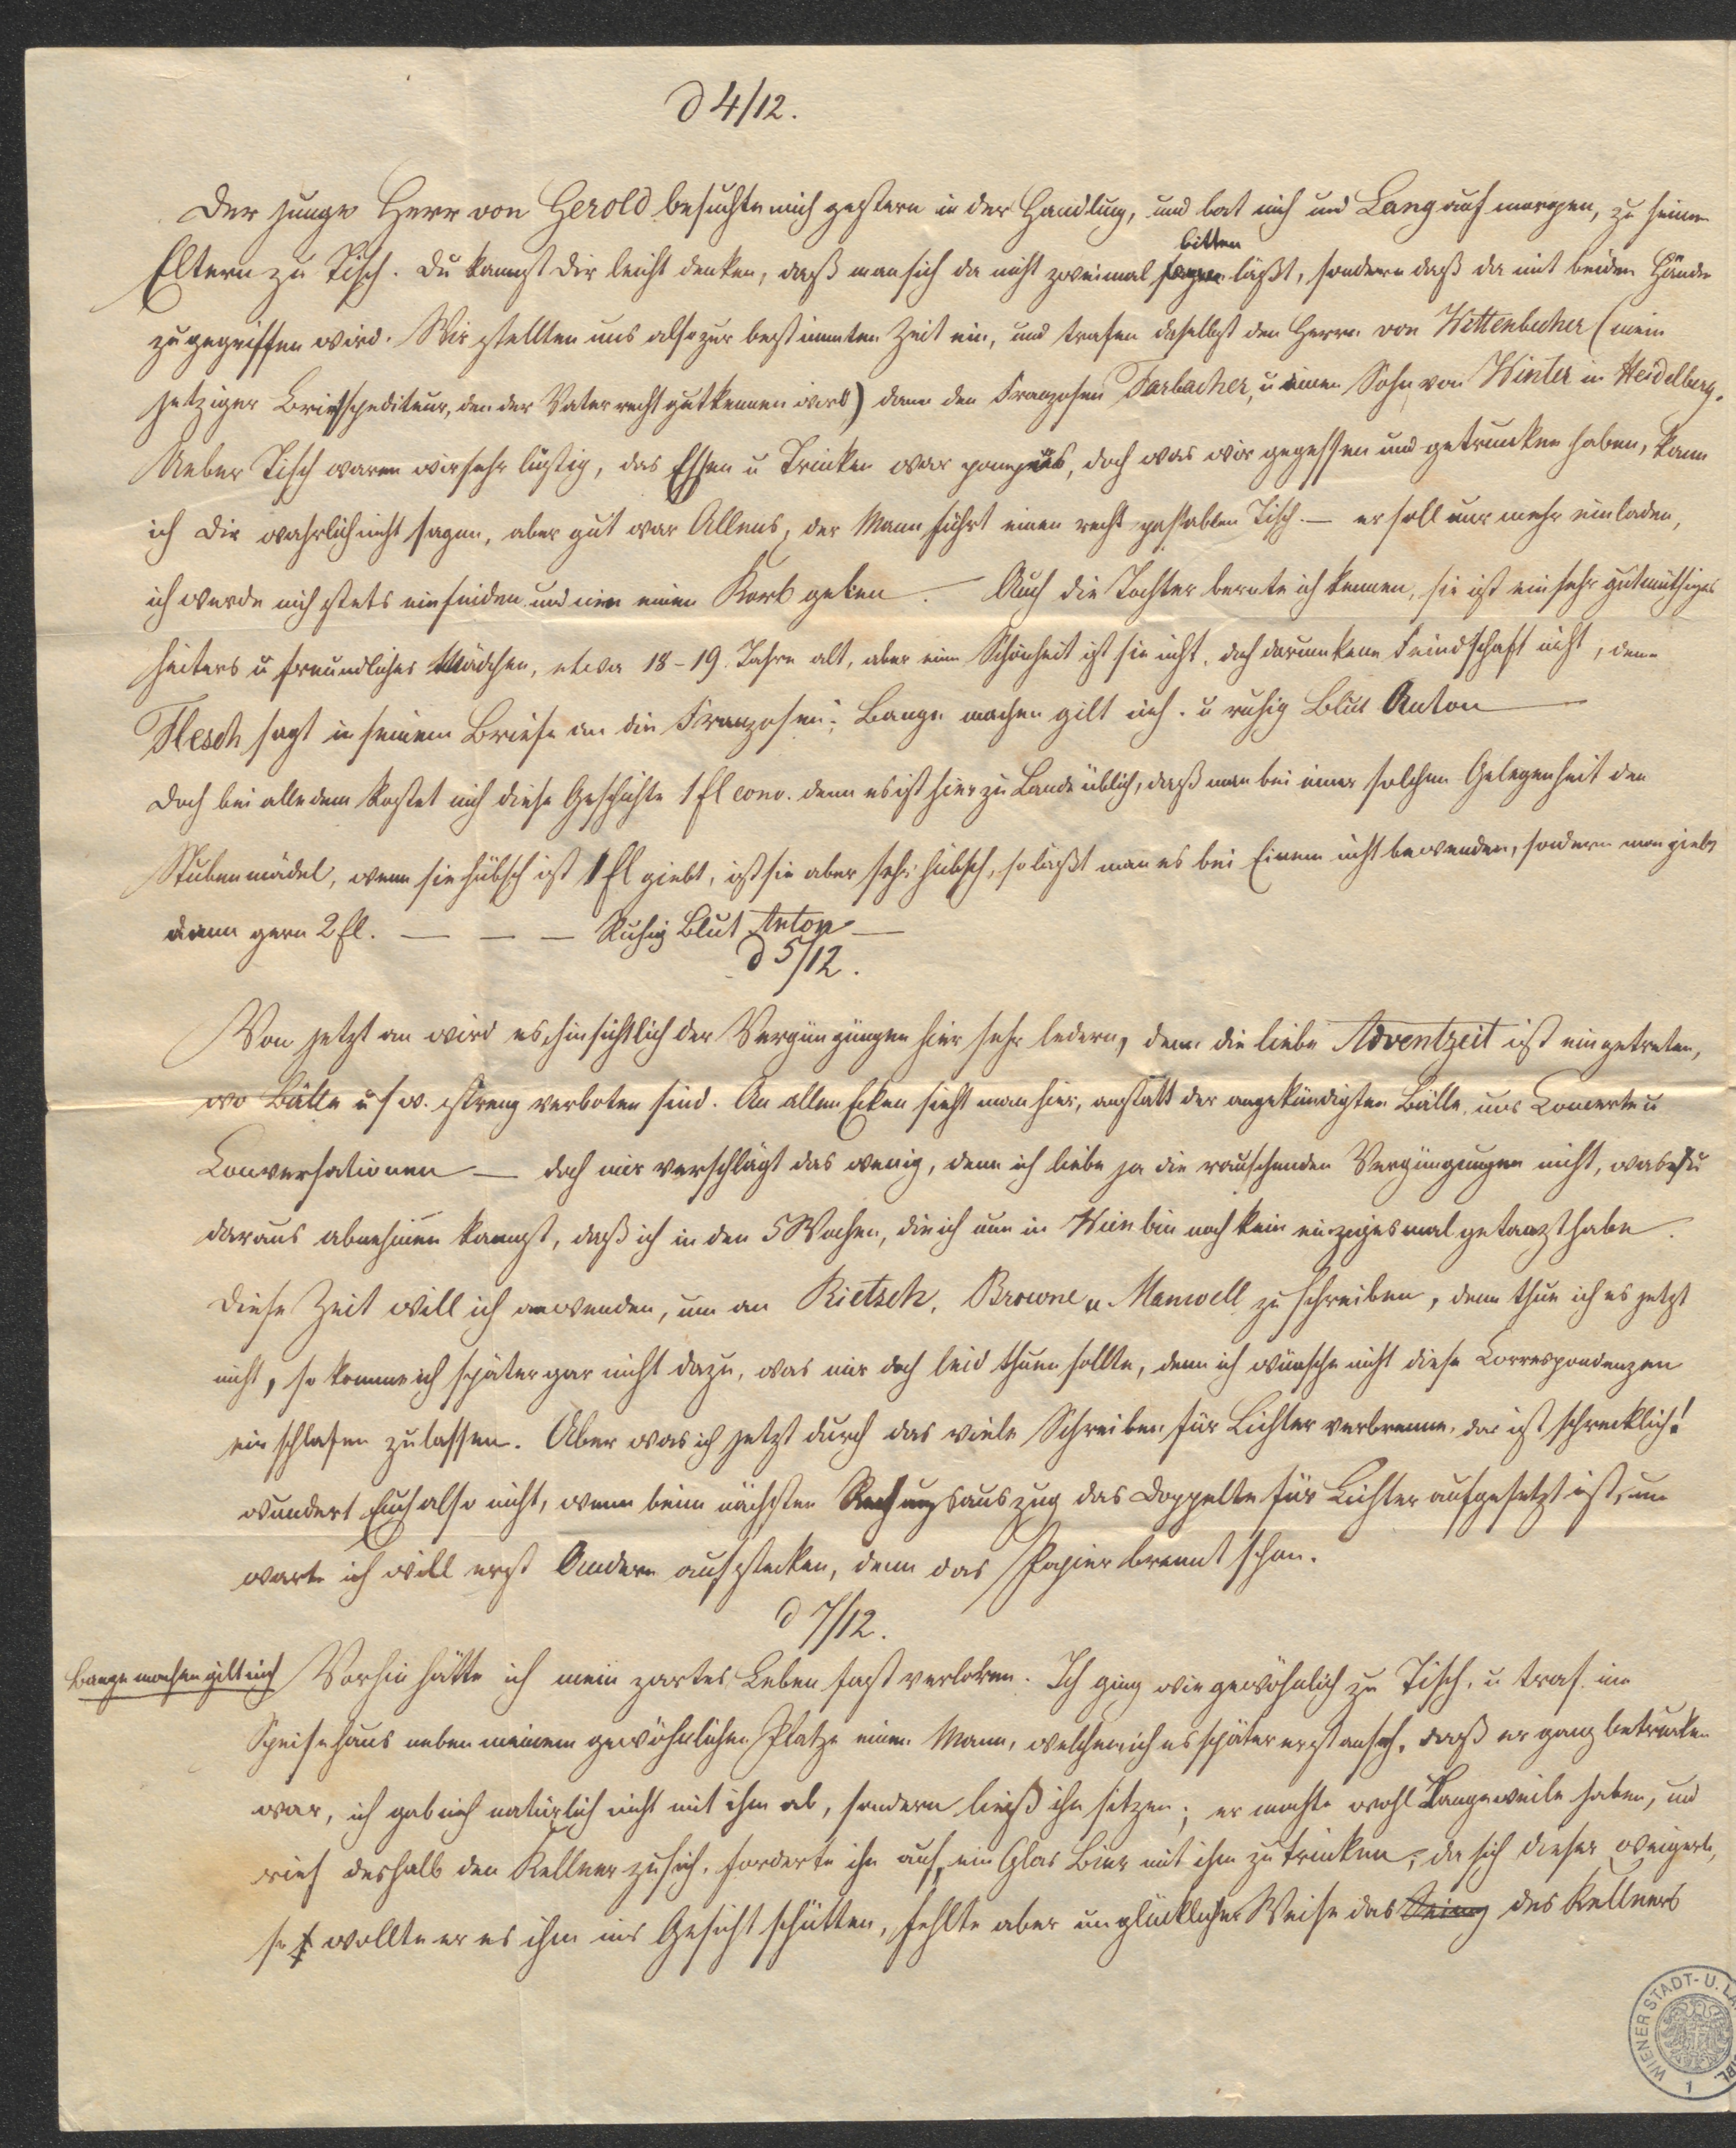 d 4/12.
Der junge Herr von Gerold besuchte mich gestern in der Handlung, und bat mich und Lang auf morgen, zu seinen
bitten
Eltern zu Tisch. Du kannst Dir leicht denken, daß man sich da nicht zweimal sagen läßt, sondern daß da mit beiden Händen
zugegriffen wird. Wir stellten uns also zur bestimmten Zeit ein, und trafen daselbst den Herrn von Wittenbecher (mein
jetziger Briefspediteur, den der Vater recht gut kennen wird) dann den Franzosen Farbacher, u einen Sohn von Winter in Heidelberg.
Ueber Tisch waren wir sehr lustig, das Essen u Trinken war pompös, doch was wir gegessen und getrunken haben, kann
ich Dir wahrlich nicht sagen, aber gut war Allens, der Mann führt einen recht passablen Tisch. — er soll nur mehr einladen,
ich werde mich stets einfinden und nie einen Korb geben. Auch die Tochter lernte ich kennen, sie ist ein sehr gutmüthiges
heiteres u freundliches Mädchen, etwa 18-19 Jahre alt, aber eine Schönheit ist sie nicht, doch darum keine Feindschaft nicht, denn
Flesch sagt in seinem Briefe an die Franzosen: Bange machen gilt nich. u ruhig Blut Anton —
Doch bei alledem kostet mich diese Geschichte 1 fl conv. denn es ist hier zu Lande üblich, daß man bei einer solchen Gelegenheit den
Stubenmädel, wenn sie hübsch ist 1 fl giebt, ist sie aber sehr hübsch, so läßt man es bei Einem nicht bewenden, sondern man giebt
dann gern 2 fl. — — — Ruhig Blut Anton —
d 5/12.
Von jetzt an wird es hinsichtlich der Vergnügungen hier sehr ledern, denn die liebe Adventzeit ist eingetreten,
wo Bälle u s w. streng verboten sind. An allen Ecken sieht man hier, anstatt der angekündigten Bälle, nur Concerte u
Conversationen — doch mir verschlägt das wenig, denn ich liebe ja die rauschenden Vergnügungen nicht, was Du
daraus abnehmen kannst, daß ich in den 5 Wochen, die ich nun in Wien bin noch kein einzigesmal getanzt habe.
Diese Zeit will ich anwenden, um an Rietsch, Browne u Manwell zu schreiben, denn thue ich es jetzt
nicht, so komme ich später gar nicht dazu, was mir doch leid thuen sollte, denn ich wünsche nicht diese Correspondenzen
einschlafen zu lassen. Aber was ich jetzt durch das viele Schreiben für Lichter verbrenne, das ist schrecklich!
wundert Euch also nicht, wenn beim nächsten Rechnungsauszug das Doppelte für Lichter aufgesetzt ist, nu
warte ich will erst Andere aufstecken, denn das Papier brennt schon.
d 7/12.
Bange machen gilt nich Vorhin hätte ich mein zartes Leben fast verloren. Ich ging wie gewöhnlich zu Tisch, u traf im
Speisehaus neben meinem gewöhnlichen Platze einen Mann, welchem ich es später erst ansah, daß er ganz betrunken
war, ich gab mich natürlich nicht mit ihm ab, sondern ließ ihn sitzen; er mochte wohl Langeweile haben, und
rief deshalb den Kellner zu sich, forderte ihn auf, ein Glas Bier mit ihm zu trinken, da sich dieser weigerte,
so wollte er es ihm ins Gesicht schütten, fehlte aber unglücklicher Weise das des Kellners
WIENER STADT- U.
1